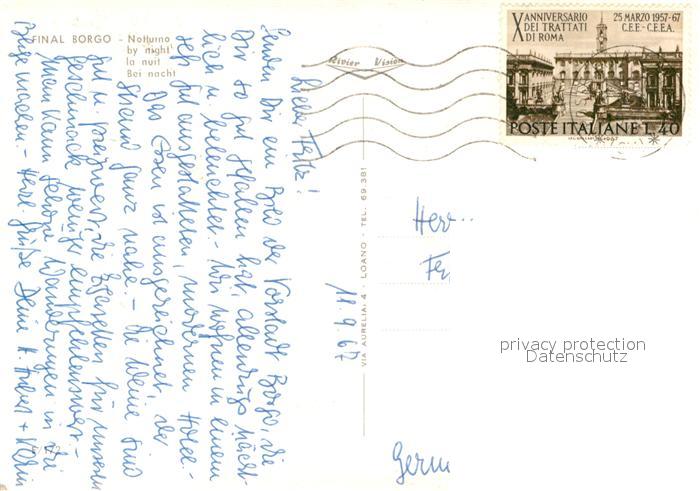 FINAL BORGO - Notturno
by night
la nuit
Bei nacht
X ANNIVERSARIO
DEI TRATTATI
DI ROMA
25 MARZO 1957-67
C.E.E.-C.E.E.A.
POSTE ITALIANE L. 40
Rivier Vision
VIA AURELIA, 4 - LOANO - TEL. 69.381
11.9.67
Lieber Fritz!
Senden Dir ein Bild der Vorstadt Borgo, die
Dir so gut gefallen hat, allerdings nächt-
lich u. beleuchtet. - Wir wohnen in einem
sehr gut ausgestatteten, modernen Hotel. -
Das Essen ist ausgezeichnet, der
Strand ganz nahe. - Die Weine sind
gut u. preiswert, die für unseren
Geschmack weniger empfehlenswert. -
Man kann schöne Wanderungen in die
Berge machen. - Herzl. Grüße Deine
Herr
Germ
privacy protection
Datenschutz